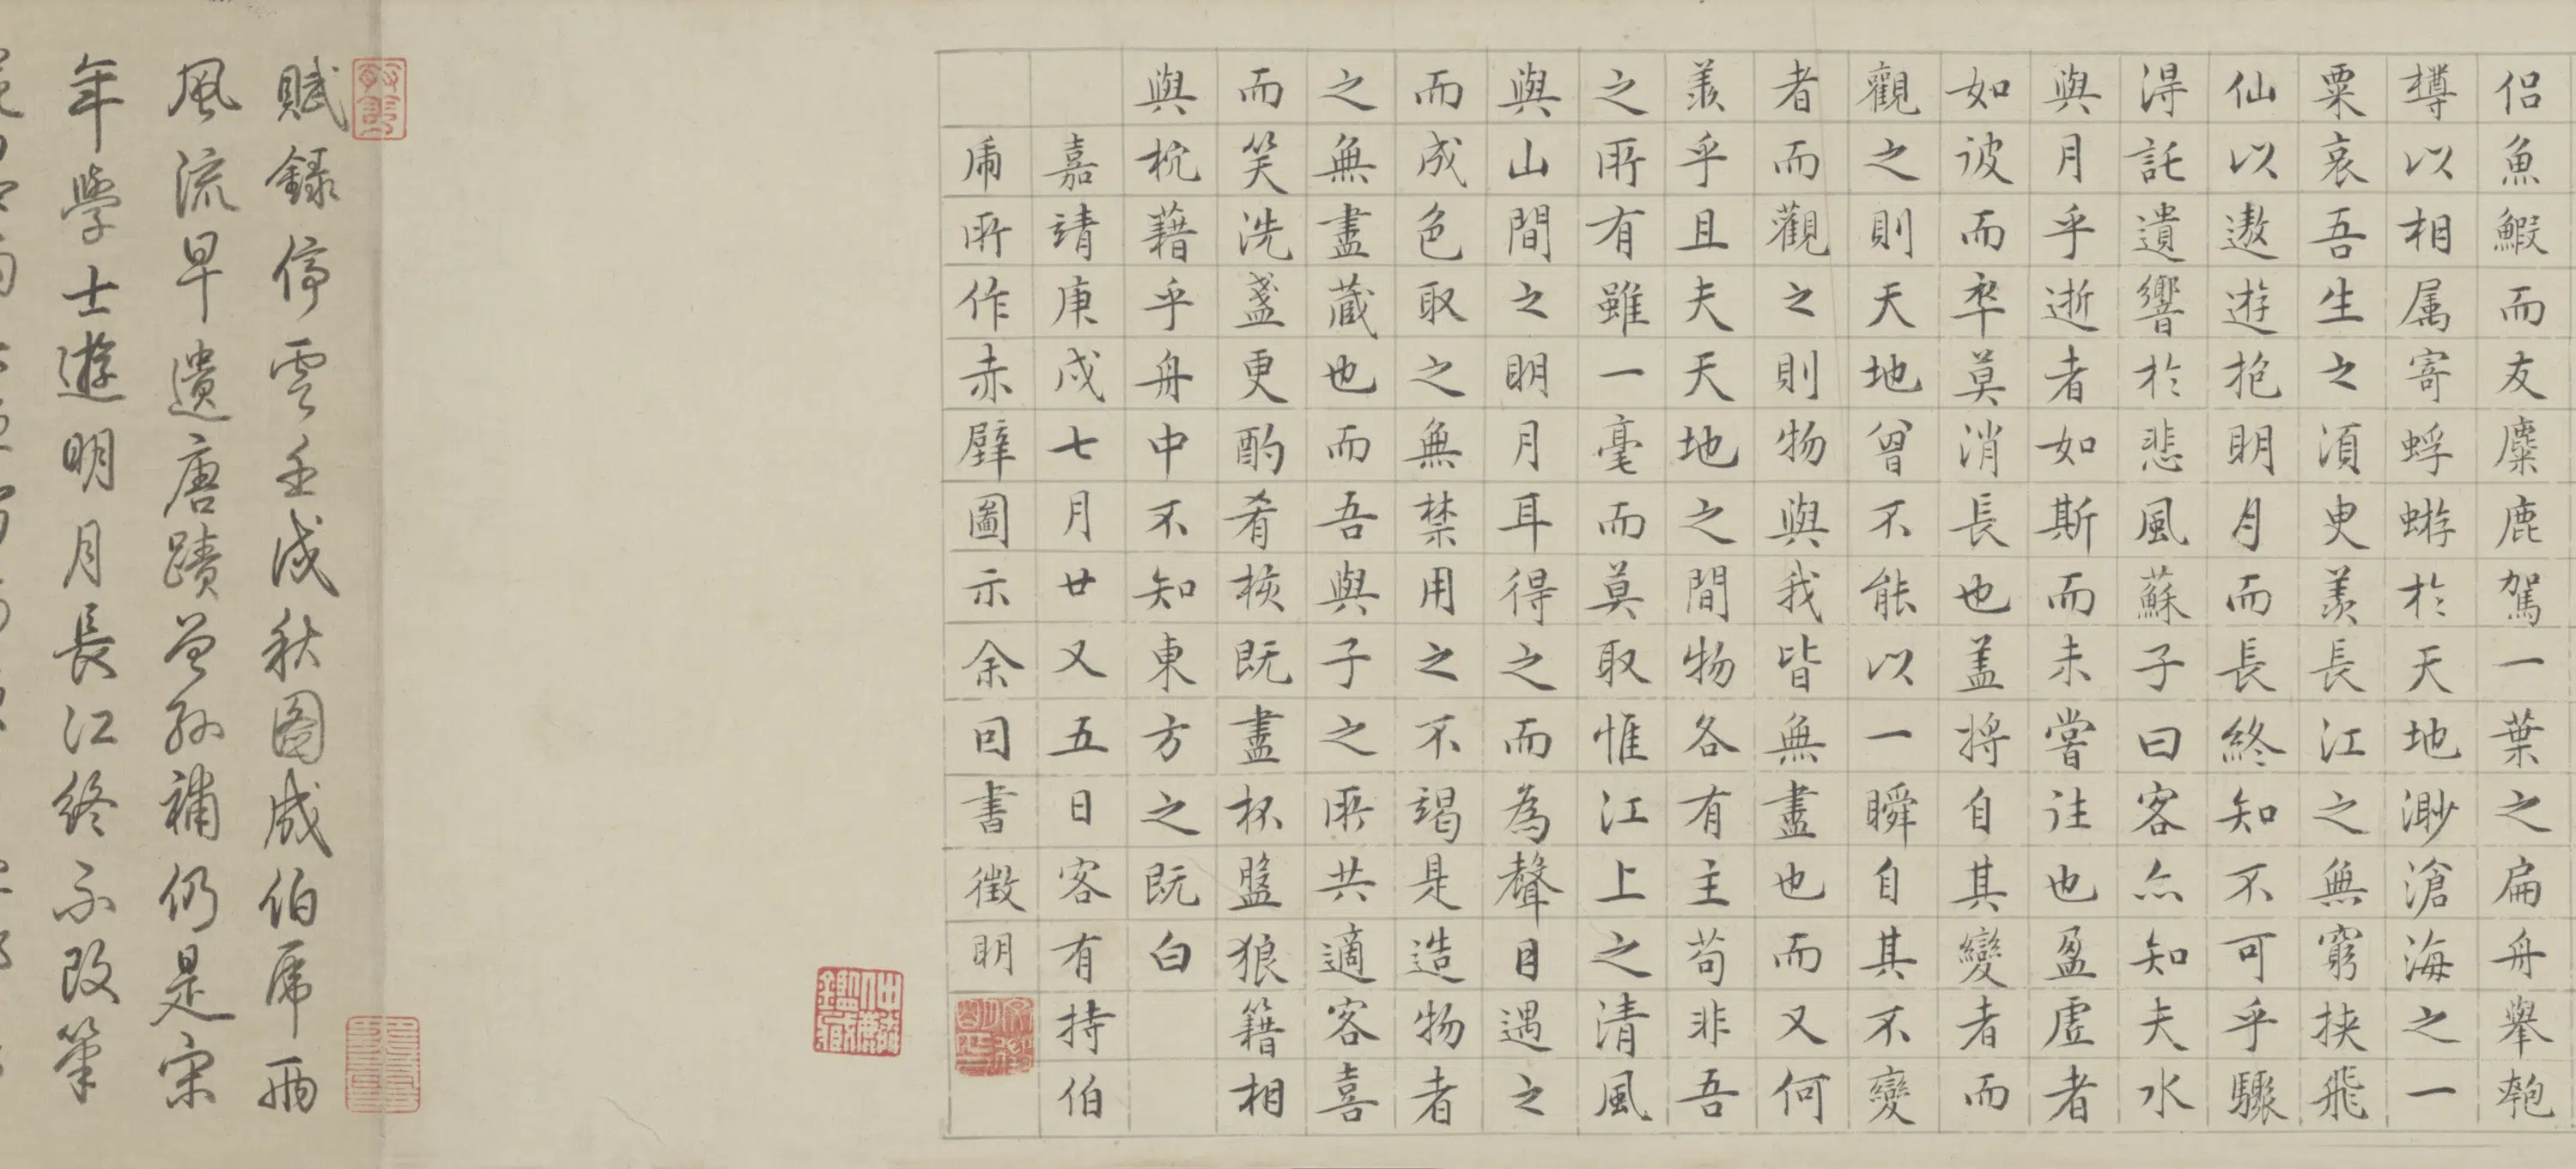 侣魚鰕而友麋鹿駕一葉之扁舟舉匏
樽以相属寄蜉蝣於天地渺滄海之一
粟哀吾生之湏臾羨長江之無窮挟飛
仙以遨遊抱明月而長終知不可乎驟
淂託遺響於悲風蘇子曰客亦知夫水
與月乎逝者如斯而未嘗往也盈虛者
如彼而卒莫消長也盖将自其變者而
觀之則天地曾不能以一瞬自其不變
者而觀之則物與我皆無盡也而又何
羨乎且夫天地之間物各有主苟非吾
之所有雖一毫而莫取惟江上之清風
與山間之明月耳得之而為聲目遇之
而成色取之無禁用之不竭是造物者
之無盡蔵也而吾與子之所共適客喜
而笑洗盞更酌肴核既盡杯盤狼籍相
與枕藉乎舟中不知東方之既白
嘉靖庚戌七月廿又五日客有持伯
虎所作赤壁圖示余因書徵明
賦録停雲壬戌秋圖成伯虎兩
風流早遺唐蹟曾孫補仍是宋
年學士遊明月長江終不改筆